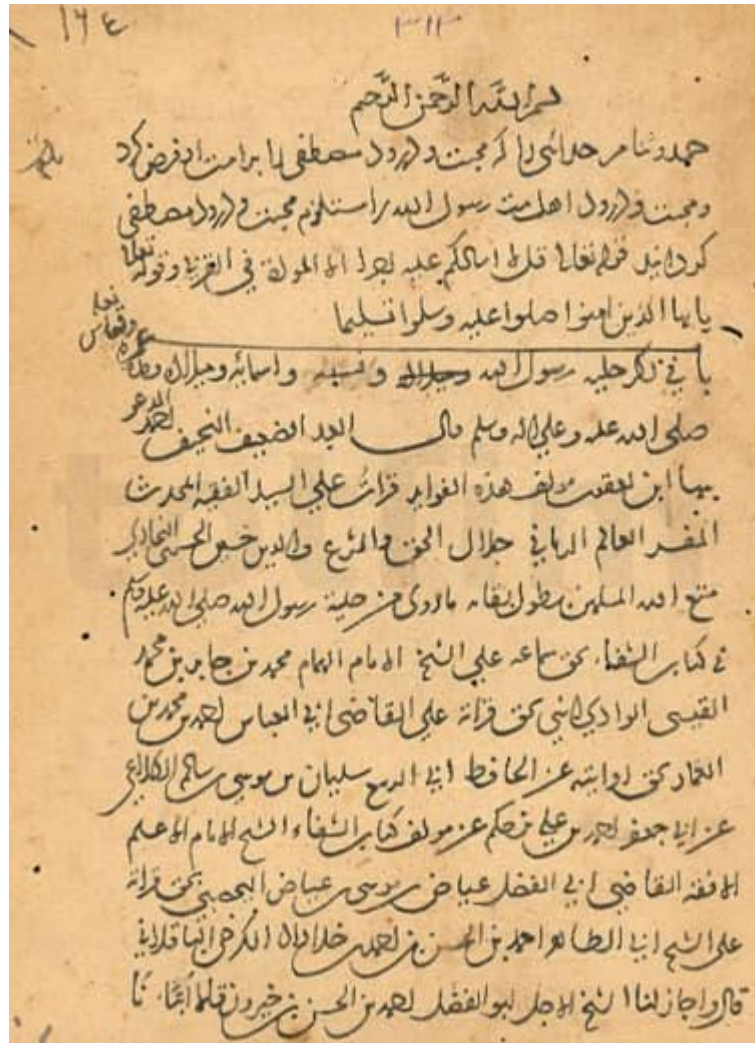 ١٦٤
٣١٣
بسم الله الرحمن الرحيم
حمد وثنا مر خدائى را كه محبت و درود مصطفى را بر امت او فرض كرد
ومحبت و درود اهل بيت رسول الله را مستلزم محبت و درود مصطفى
گردانيد قوله تعالى قل لا اسالكم عليه اجرا الا المودة في القربى وقوله تعالى
يا ايها الذين امنوا صلوا عليه وسلموا تسليما
باب في ذكر حليه رسول الله ونسبه واسمائه وميلاده
صلى الله عليه وعلى اله وسلم قال العبد الضعيف النحيف
ابن يعقوب مولف هذه الفوايد قرات على السيد الفقيه المحدث
المفسر العالم الرباني جلال الحق والشرع والدين حسين الحسيني البخاري
متع الله المسلمين بطول بقائه ما روى من حلية رسول الله صلى الله عليه وسلم
في كتاب الشفاء بحق سماعه على الشيخ الامام الهمام محمد بن جابر بن محمد
القيسى الوادي اشي بحق قراته على القاضى ابي العباس احمد بن محمد بن
الغماز بحق روايته عن الحافظ ابي الربيع سليمان بن موسى بن سالم الكلاعي
عن ابي جعفر احمد بن علي بن حكم عن مولف كتاب الشفاء الشيخ الامام الاعلم
الافقه القاضي ابي الفضل عياض بن موسى بن عياض اليحصبي بحق قراته
على الشيخ ابي الطاهر احمد بن الحسن بن احمد بن خداداد الكرخى الباقلاني
قال واجاز لنا الشيخ الاجل ابو الفضل احمد بن الحسن بن خيرون قالا نا